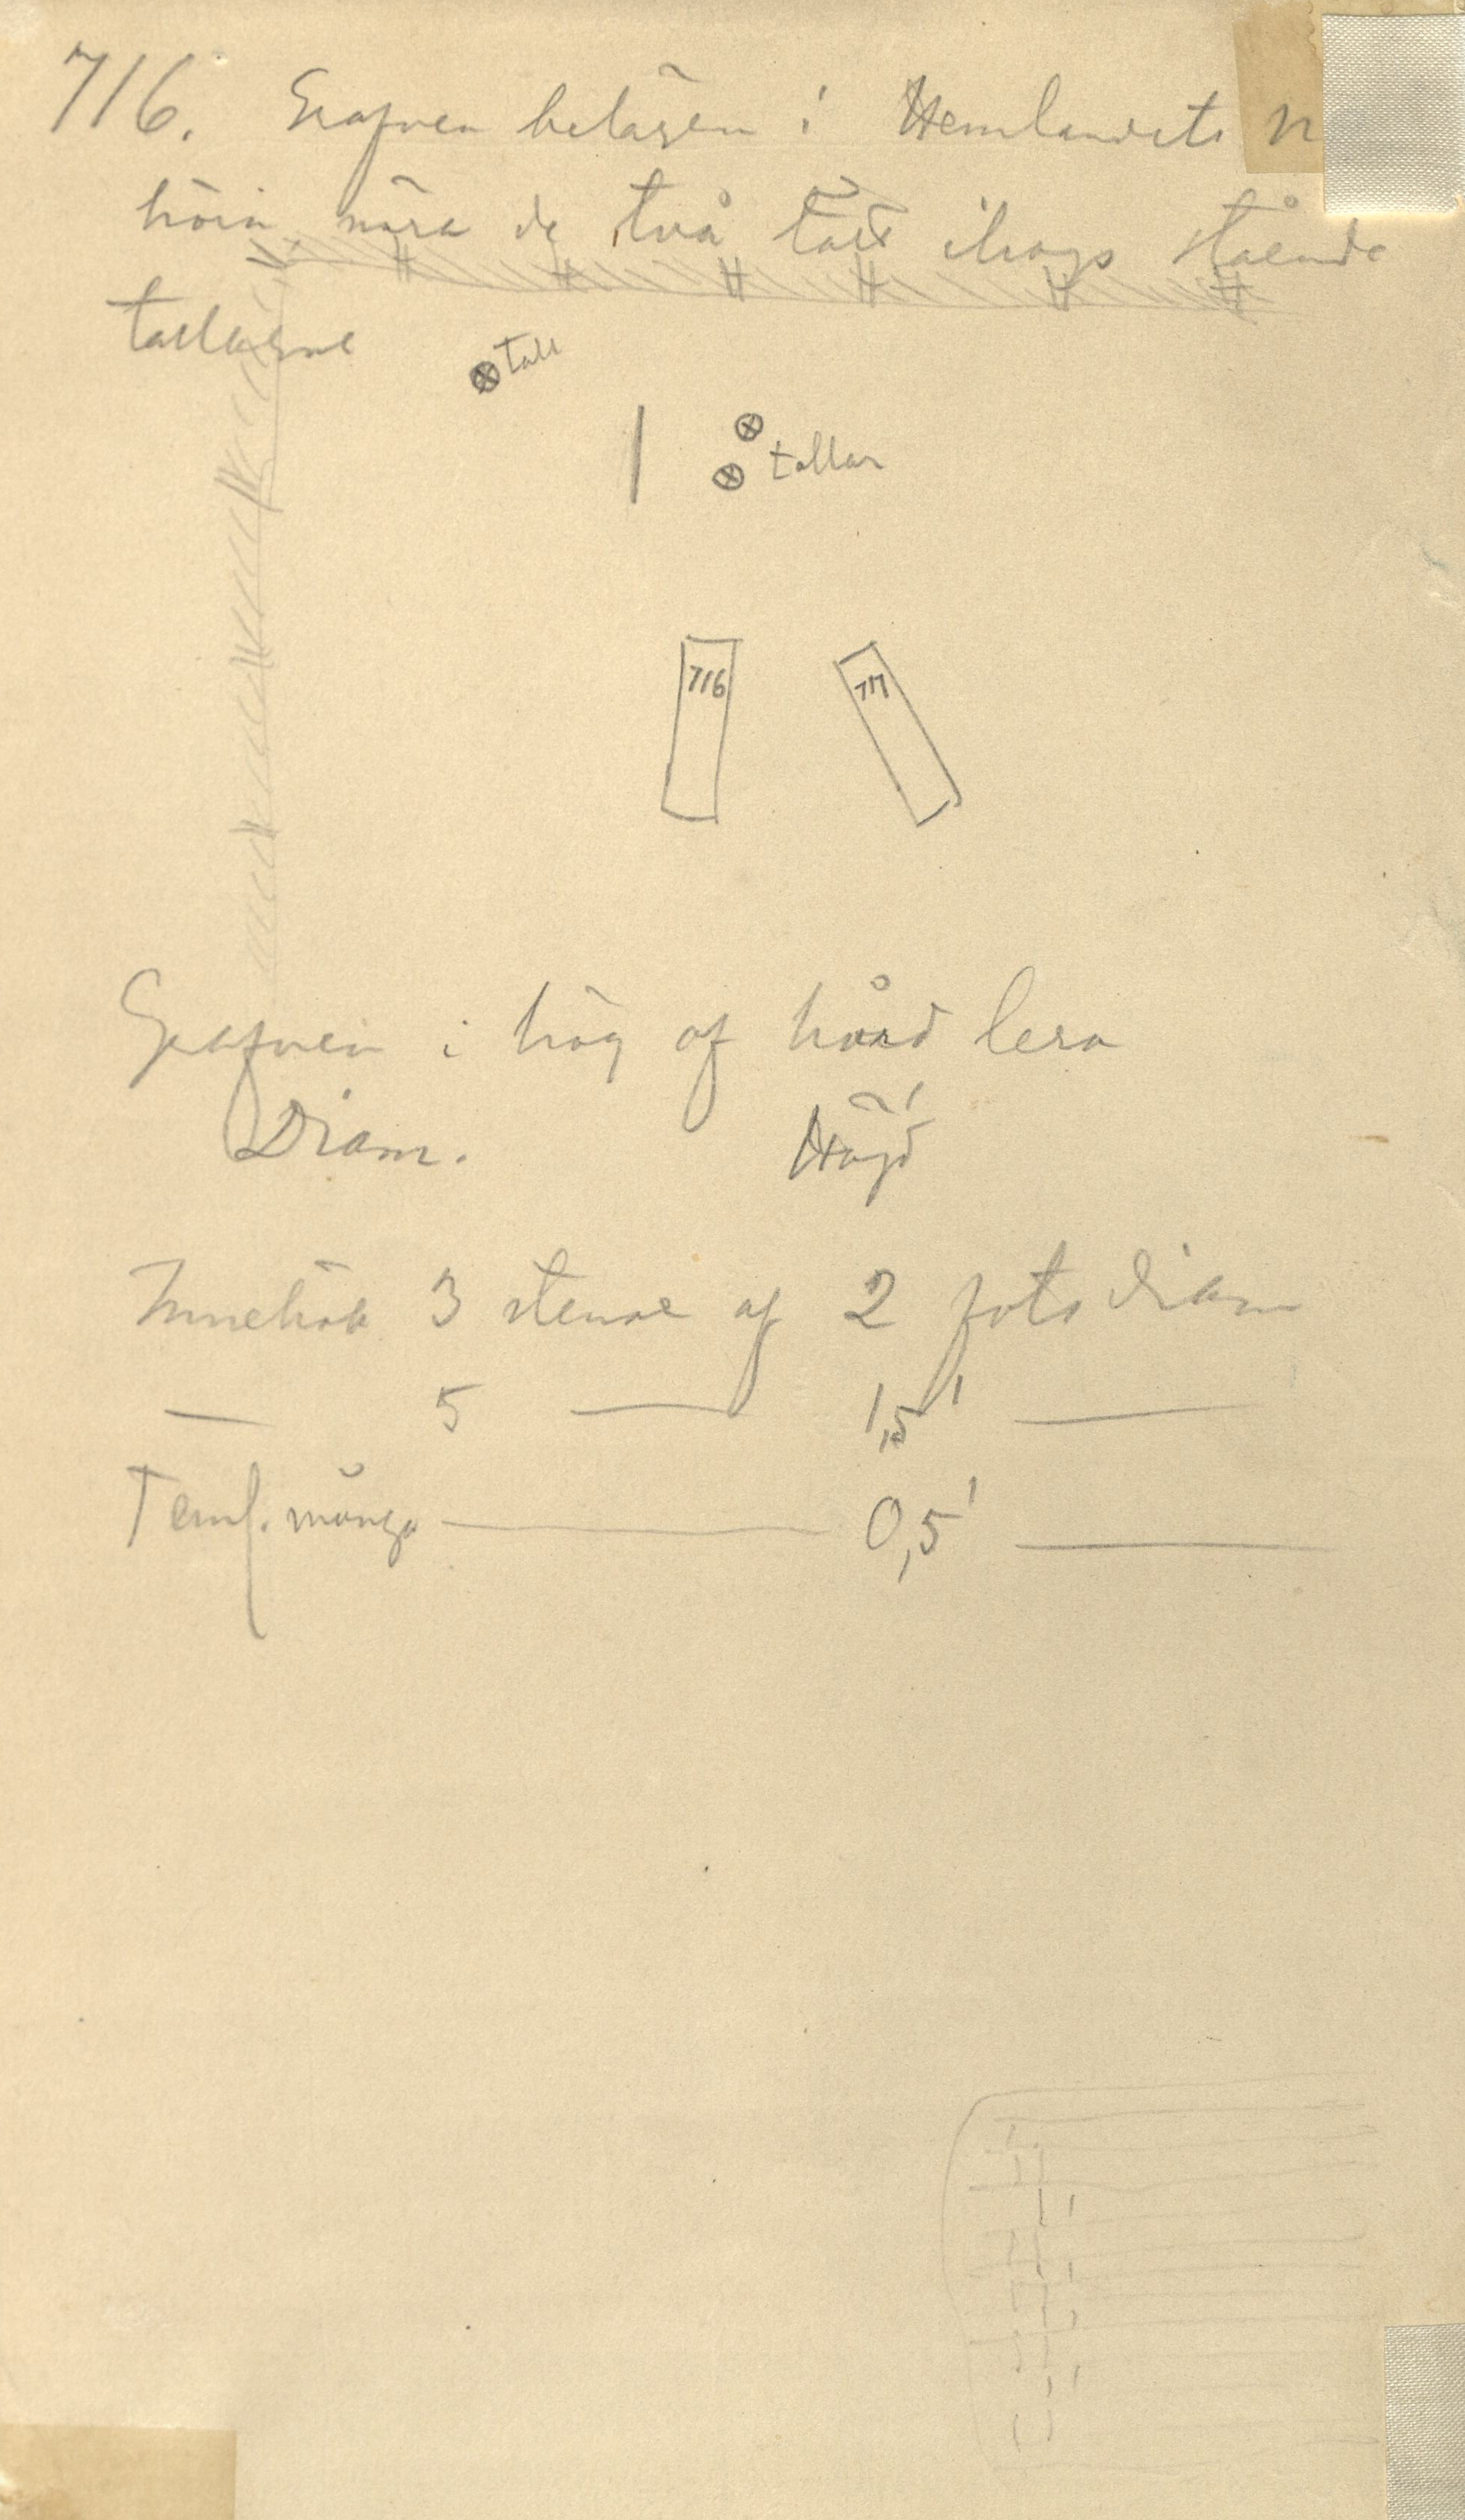 716. Grafven belägen i Hemlandets n
hörn nära de två tätt ihop stående
tallarne
tall
tallar
716
717
Grafven i hög af hård lera
Diam. Höjd
Innehöll 3 stenar af 2 fots diam
— 5 — 1,5' —
Teml. många — 0,5' —